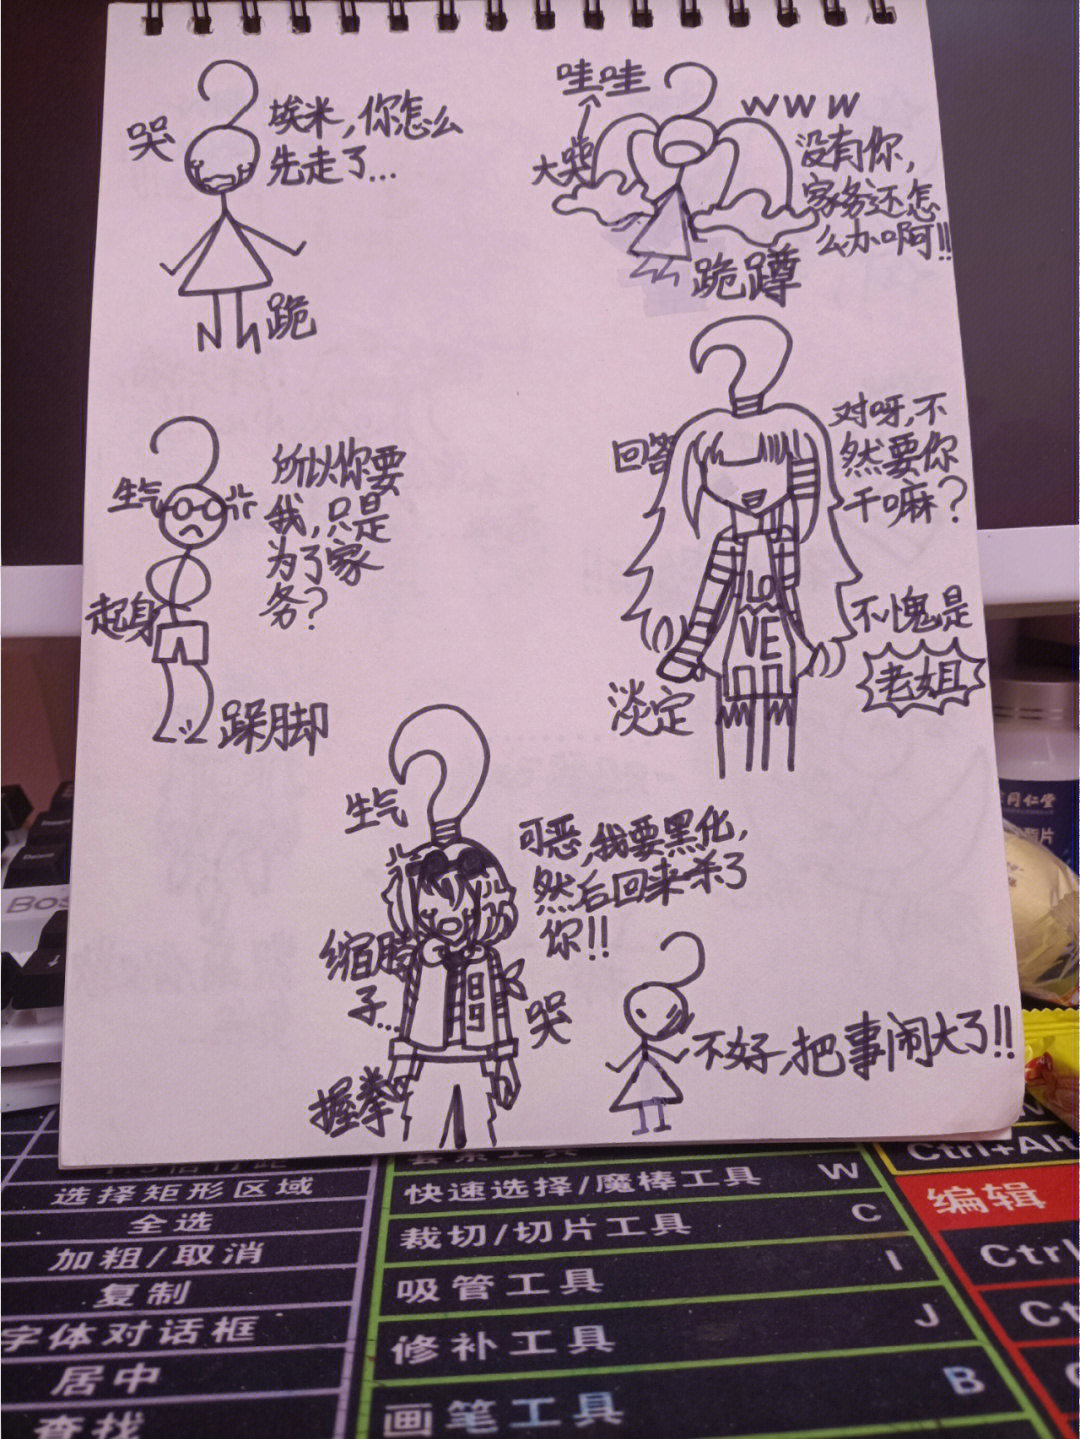 哭
埃米,你怎么
先走了...
跪
哇哇
大哭
WWW
没有你,
家务还怎
么办啊!!
跪蹲
生气
所以你要
我,只是
为了家
务?
起身
跺脚
回答
对呀,不
然要你
干嘛?
LO
VE
淡定
不愧是
老姐
生气
可恶,我要黑化,
然后回来杀了
你!!
缩脖
子...
哭
握拳
不好,把事闹大了!!
同仁堂
片
选择矩形区域
全选
加粗/取消
复制
字体对话框
居中
查找
快速选择/魔棒工具 W
裁切/切片工具 C
吸管工具 I
修补工具 J
画笔工具 B
Ctrl+Alt
编辑
Ctrl